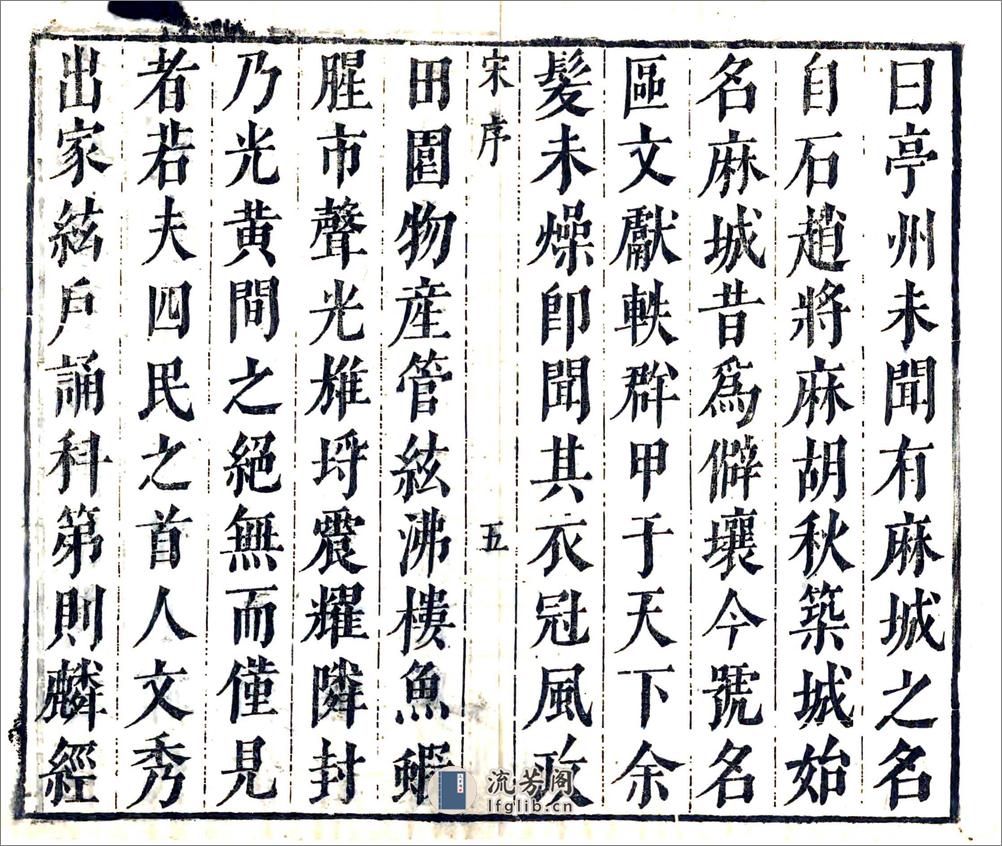 曰亭州未聞有麻城之名
自石趙將麻胡秋築城始
名麻城昔爲僻壤今號名
區文獻軼群甲于天下余
髮未燥卽聞其衣冠風政
宋序
五
田園物産管絃沸樓魚蝦
腥市聲光雄埒震耀隣封
乃光黄間之絕無而僅見
者若夫四民之首人文秀
出家絃戶誦科第則麟經
流芳阁
lfglib.cn